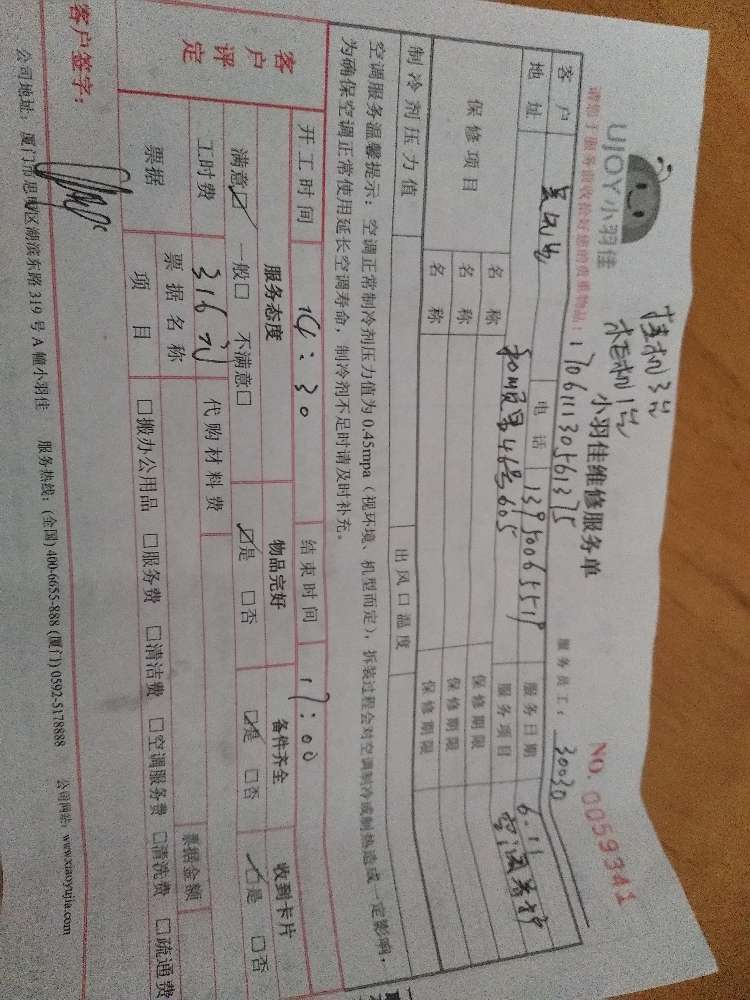 UJOY小羽佳
挂机3台
柜机1台
小羽佳维修服务单
NO. 0059341
请您于服务前收拾好您的贵重物品! 170611130561375
服务员工: 30030
客户 电话 13950065519 服务日期 6.11
地址 和顺里46号605 服务项目 空调养护
保修项目 名称 保修期限
名称 保修期限
名称 保修期限
制冷剂压力值 出风口温度
空调服务温馨提示:空调正常制冷剂压力值为0.45mpa(视环境、机型而定),拆装过程会对空调制冷或制热造成一定影响,
为确保空调正常使用延长空调寿命,制冷剂不足时请及时补充。
开工时间 14:30 结束时间 17:00
客户评定 服务态度 物品完好 备件齐全 收到卡片
满意☑ 一般□ 不满意□ ☑是 □否 ☑是 □否 ☑是 □否
工时费 316元 代购材料费
票据 票据名称 票据金额
项目 □搬办公用品 □服务费 □清洁费 □空调服务费 □清洗费 □疏通费
客户签字:
公司地址:厦门市思明区湖滨东路319号A幢小羽佳 服务热线:(全国)400-6655-888 (厦门) 0592-5178888 公司网站:www.xiaoyujia.com